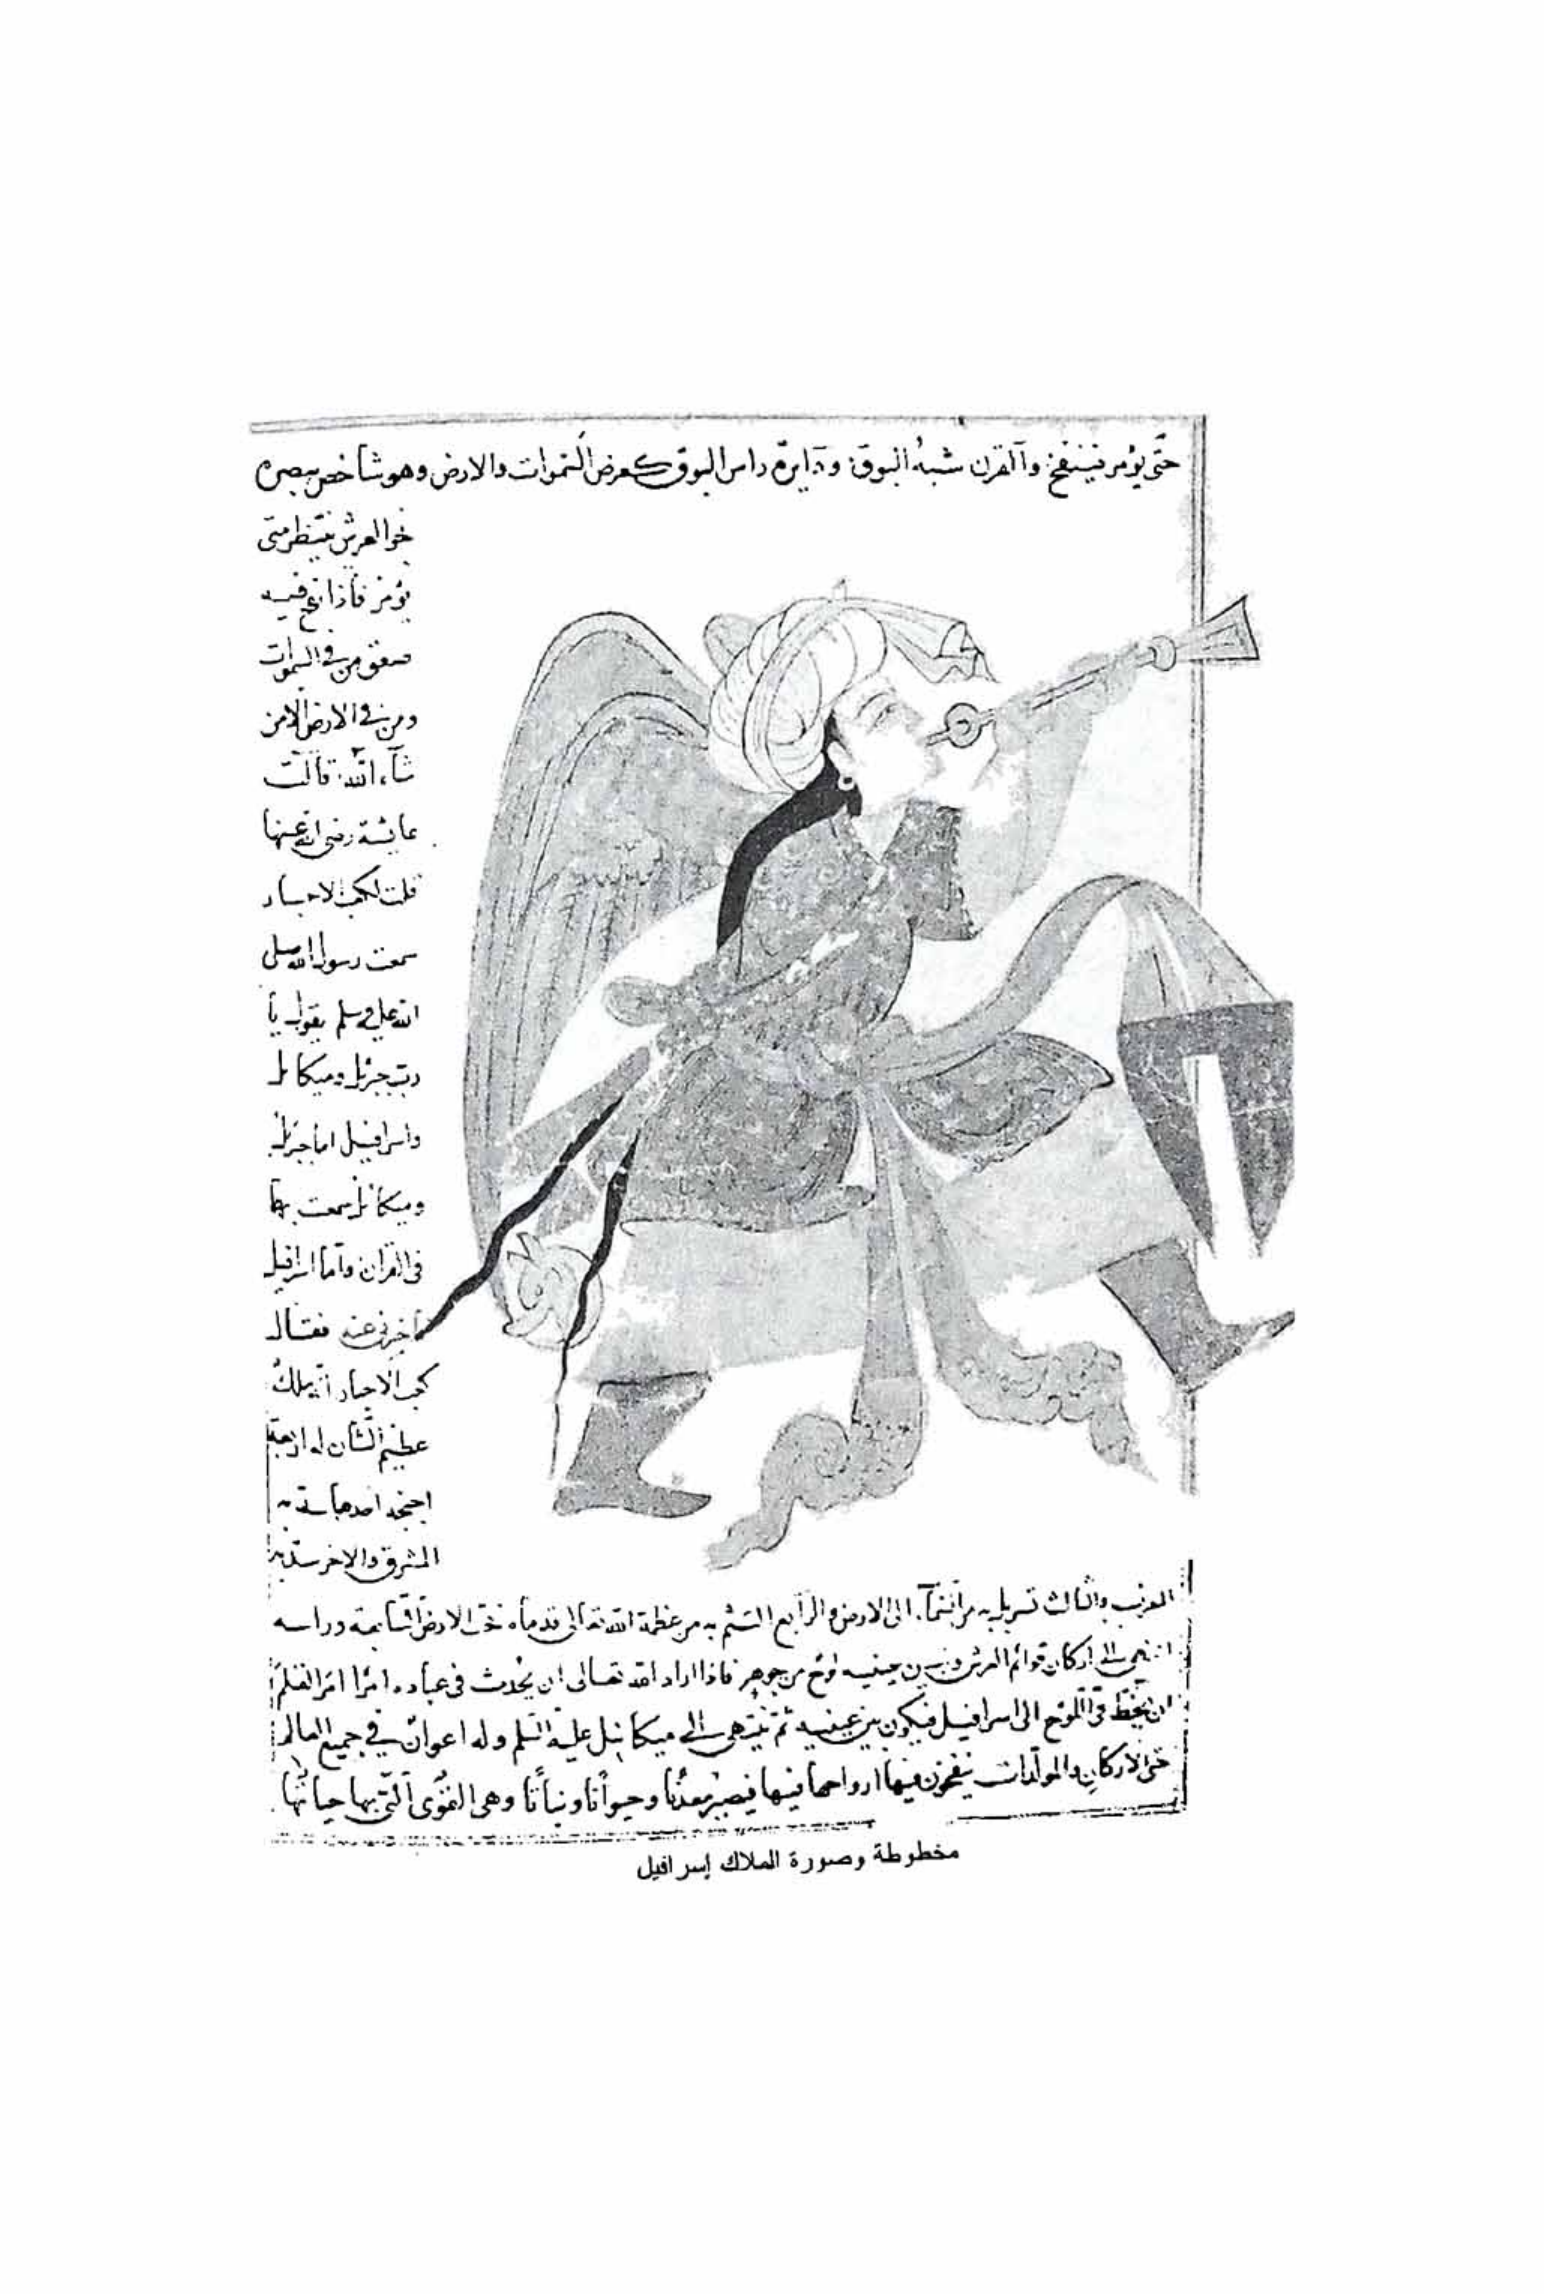 حتى يؤمر فينفخ وآلقرن شبه البوق ودايرة راس البوق كعرض السموات والارض وهو شاخص ببصره
نحو العرش ينتظر متى
يؤمر فاذا نفخ فيه
صعق من في السموات
ومن في الارض الا من
شآء الله قالت
عايشة رضى الله عنها
قلت لكعب الاحبار
سمعت رسول الله صلى
الله عليه وسلم يقول يا
رب جبرئيل وميكائيل
واسرافيل اما جبرئيل
وميكائيل سمعت بهما
في القران وآما اسرافيل
فاخبرني عنه فقال
كعب الاحبار انه ملك
عظيم الشان له اربعة
اجنحة احدها سد به
المشرق والاخر سد به
المغرب والثالث تسربل به من السمآء الى الارض والرابع التثم به من عظمة الله تعالى قدماه تحت الارض السابعة وراسه
انتهى الى اركان قوائم العرش وبين عينيه لوح من جوهر فاذا اراد الله تعالى ان يحدث في عباده امرا امر القلم
ان يخط في اللوح الى اسرافيل فيكون بين عينيه ثم ينتهى الى ميكائيل عليه السلم وله اعوان في جميع العالم
حتى الاركان والمولدات ينفخون فيها ارواحها فيها فيصير معدنا وحيوانا ونباتا وهى القوى التى بها حياتها
مخطوطة وصورة الملاك إسرافيل